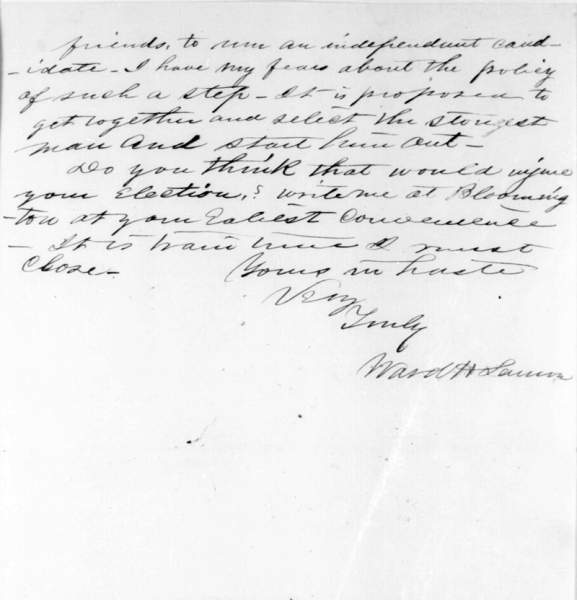 friends, to run an independent cand-
-idate - I have my fears about the policy
of such a step - It is proposed to
get together and select the stongest
man and start him out -
Do you think that would injure
your Election,? write me at Blooming
-ton at your Ealiest Convenience
- It is train time & I must
Close - Yours in haste
Very
Truly
Ward H Lamon